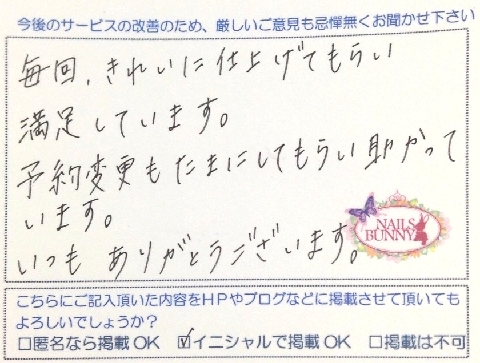 今後のサービスの改善のため、厳しいご意見も忌憚無くお聞かせ下さい
毎回、きれいに仕上げてもらい
満足しています。
予約変更もたまにしてもらい助かって
います。
いつも ありがとうございます。
NAILS
BUNNY
こちらにご記入頂いた内容をHPやブログなどに掲載させて頂いても
よろしいでしょうか?
□匿名なら掲載OK ☑イニシャルで掲載OK □掲載は不可